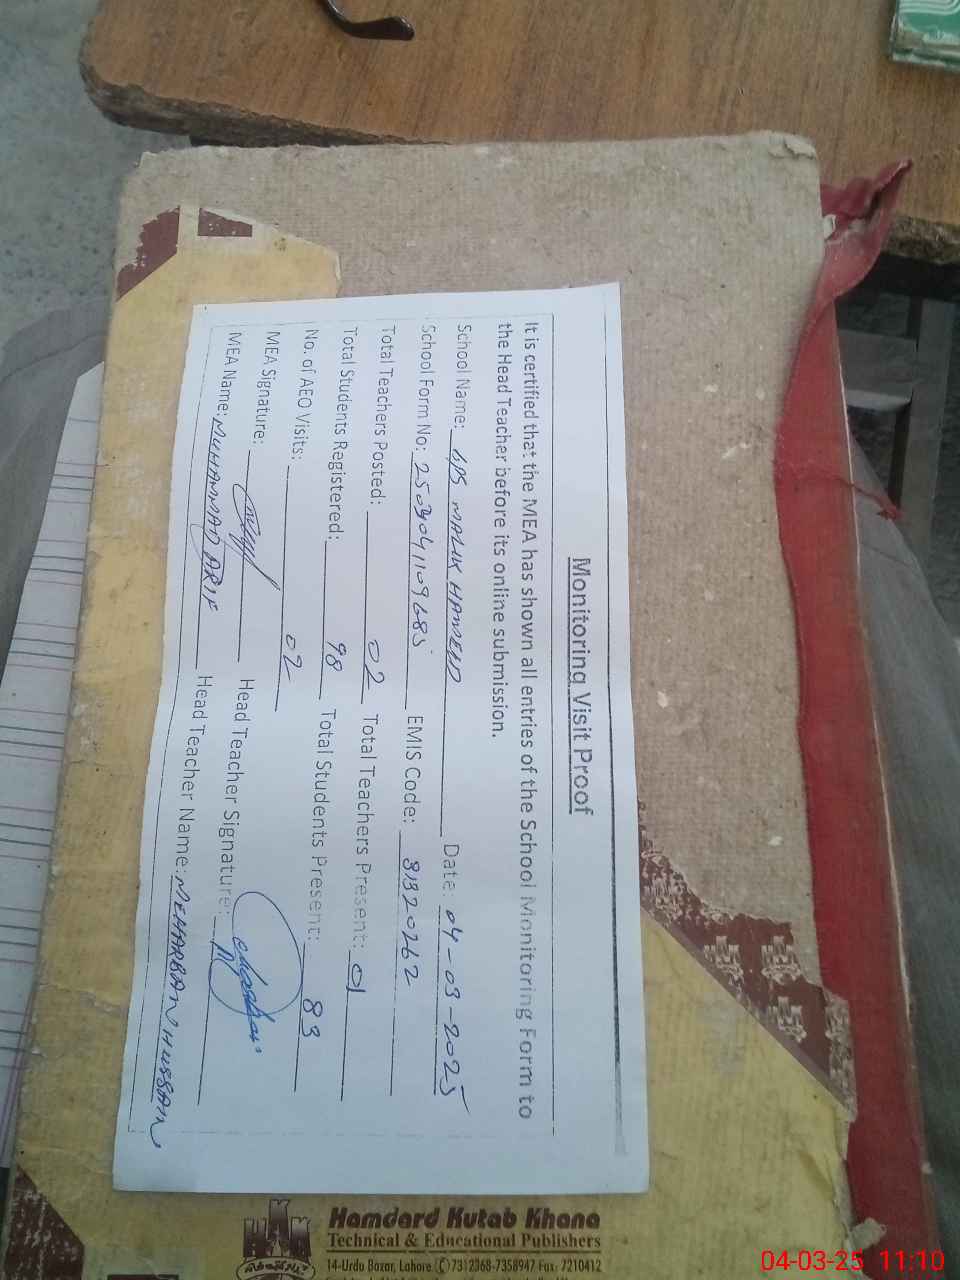 Monitoring Visit Proof
It is certified that the MEA has shown all entries of the School Monitoring Form to
the Head Teacher before its online submission.
School Name: GPS MALIK HAMEED Date: 04-03-2025
School Form No: EMIS Code: 31320262
Total Teachers Posted: 02 Total Teachers Present: 01
Total Students Registered: 98 Total Students Present: 83
No. of AEO Visits: 02
MEA Signature: Head Teacher Signature:
MEA Name: MUHAMMAD ARIF Head Teacher Name: MEHARBAN HUSSAIN
Hamdard Kutab Khana
Technical & Educational Publishers
14-Urdu Bazar, Lahore 7312368-7358947 Fax: 7210412
04-03-25 11:10